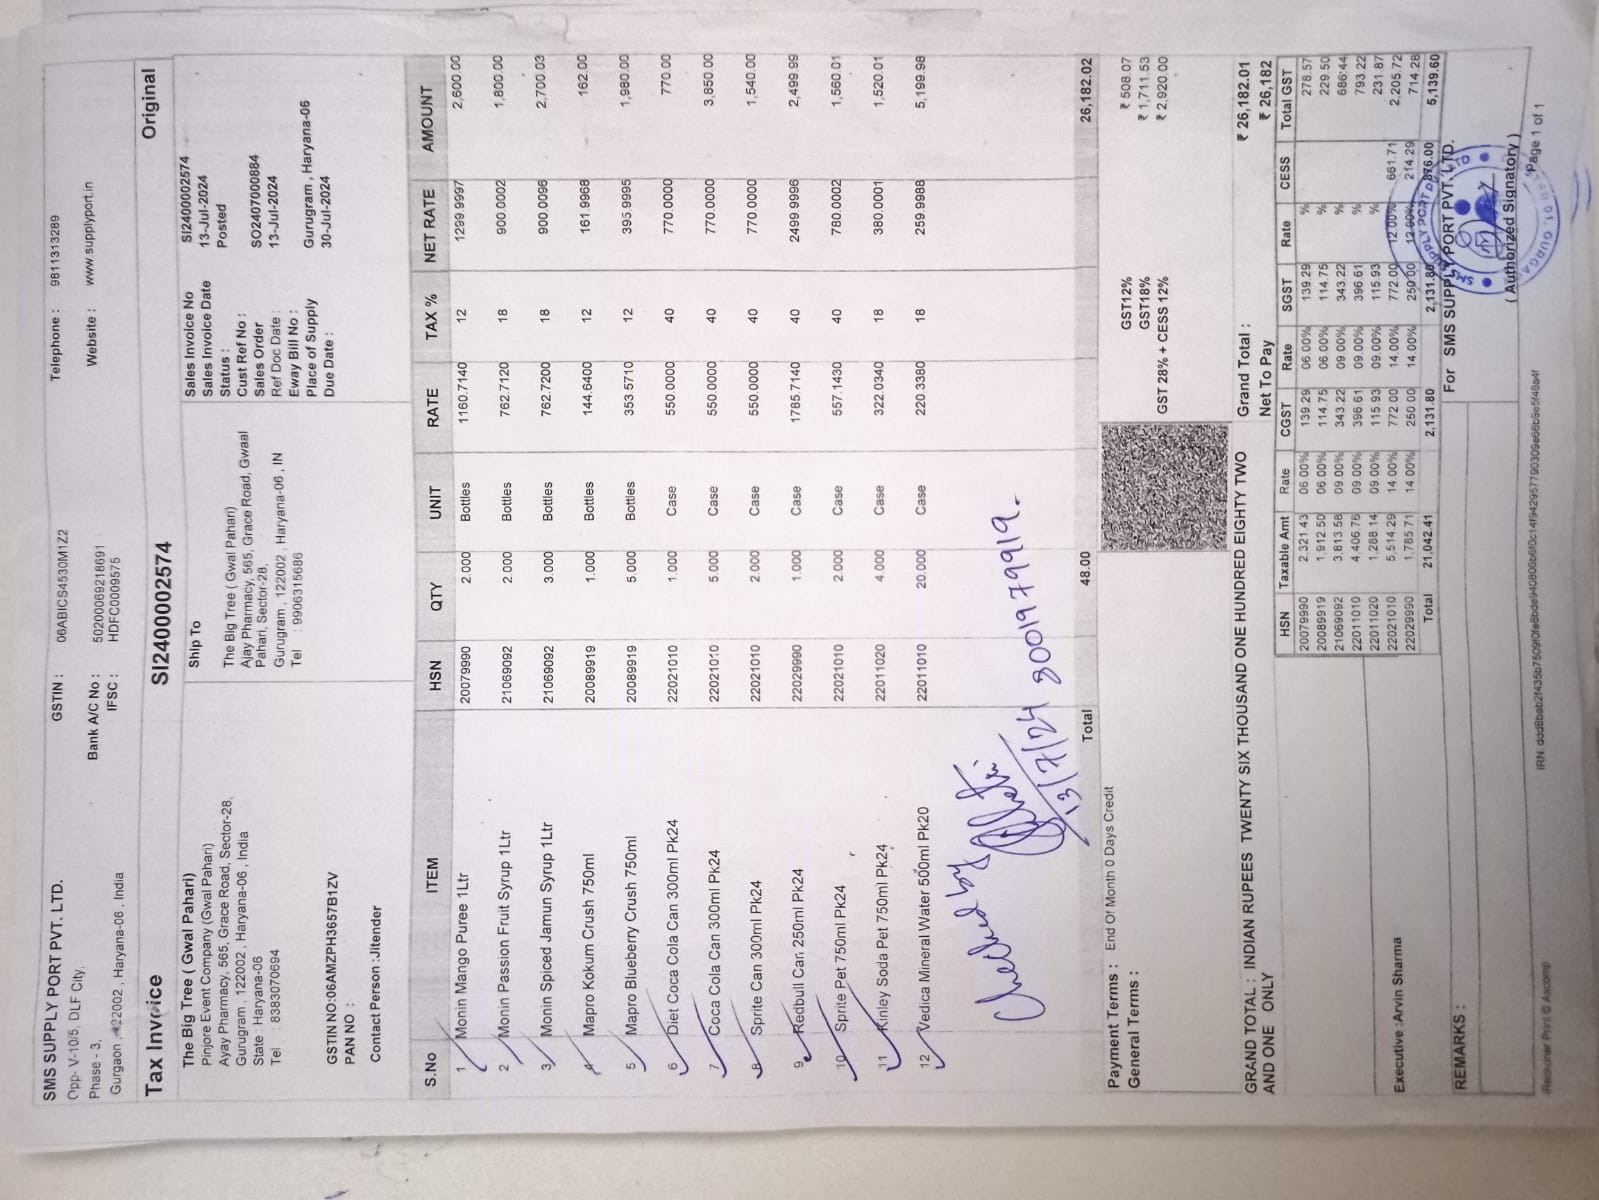 SMS SUPPLY PORT PVT. LTD. GSTIN : 06ABICS4530M1Z2 Telephone : 9811313289
Opp- V-10/5, DLF City,
Phase - 3, Bank A/C No : 50200069218691 Website : www.supplyport.in
Gurgaon , 122002 , Haryana-06 , India IFSC : HDFC0009575
Tax Invoice SI2400002574 Original
The Big Tree ( Gwal Pahari)
Pinjore Event Company (Gwal Pahari)
Ajay Pharmacy, 565, Grace Road, Sector-28,
Gurugram , 122002 , Haryana-06 , India
State : Haryana-06
Tel : 8383070694
GSTIN NO:06AMZPH3657B1ZV
PAN NO :
Contact Person :Jitender
Ship To
The Big Tree ( Gwal Pahari)
Ajay Pharmacy, 565, Grace Road, Gwaal
Pahari, Sector-28,
Gurugram , 122002 , Haryana-06 , IN
Tel : 9906315686
Sales Invoice No SI2400002574
Sales Invoice Date 13-Jul-2024
Status : Posted
Cust Ref No :
Sales Order SO2407000884
Ref Doc Date : 13-Jul-2024
Eway Bill No :
Place of Supply Gurugram , Haryana-06
Due Date : 30-Jul-2024
S.No ITEM HSN QTY UNIT RATE TAX % NET RATE AMOUNT
1 Monin Mango Puree 1Ltr 20079990 2.000 Bottles 1160.7140 12 1299.9997 2,600.00
2 Monin Passion Fruit Syrup 1Ltr 21069092 2.000 Bottles 762.7120 18 900.0002 1,800.00
3 Monin Spiced Jamun Syrup 1Ltr 21069092 3.000 Bottles 762.7200 18 900.0096 2,700.03
4 Mapro Kokum Crush 750ml 20089919 1.000 Bottles 144.6400 12 161.9968 162.00
5 Mapro Blueberry Crush 750ml 20089919 5.000 Bottles 353.5710 12 395.9995 1,980.00
6 Diet Coca Cola Can 300ml Pk24 22021010 1.000 Case 550.0000 40 770.0000 770.00
7 Coca Cola Can 300ml Pk24 22021010 5.000 Case 550.0000 40 770.0000 3,850.00
8 Sprite Can 300ml Pk24 22021010 2.000 Case 550.0000 40 770.0000 1,540.00
9 Redbull Can 250ml Pk24 22029990 1.000 Case 1785.7140 40 2499.9996 2,499.99
10 Sprite Pet 750ml Pk24 22021010 2.000 Case 557.1430 40 780.0002 1,560.01
11 Kinley Soda Pet 750ml Pk24 22011020 4.000 Case 322.0340 18 380.0001 1,520.01
12 Vedica Mineral Water 500ml Pk20 22011010 20.000 Case 220.3380 18 259.9988 5,199.98
Checked by
13/7/24 8001979919.
Total 48.00 26,182.02
Payment Terms : End Of Month 0 Days Credit
General Terms :
GST12% ₹ 508.07
GST18% ₹ 1,711.53
GST 28% + CESS 12% ₹ 2,920.00
GRAND TOTAL : INDIAN RUPEES TWENTY SIX THOUSAND ONE HUNDRED EIGHTY TWO
AND ONE ONLY
Grand Total : ₹ 26,182.01
Net To Pay ₹ 26,182
HSN Taxable Amt Rate CGST Rate SGST Rate CESS Total GST
20079990 2,321.43 06.00% 139.29 06.00% 139.29 % 278.57
20089919 1,912.50 06.00% 114.75 06.00% 114.75 % 229.50
21069092 3,813.58 09.00% 343.22 09.00% 343.22 % 686.44
22011010 4,406.76 09.00% 396.61 09.00% 396.61 % 793.22
22011020 1,288.14 09.00% 115.93 09.00% 115.93 % 231.87
22021010 5,514.29 14.00% 772.00 14.00% 772.00 12.00% 661.71 2,205.72
22029990 1,785.71 14.00% 250.00 14.00% 250.00 12.00% 214.29 714.28
Total 21,042.41 2,131.80 2,131.80 876.00 5,139.60
Executive :Arvin Sharma
For SMS SUPPLY PORT PVT. LTD.
( Authorized Signatory )
REMARKS :
Page 1 of 1